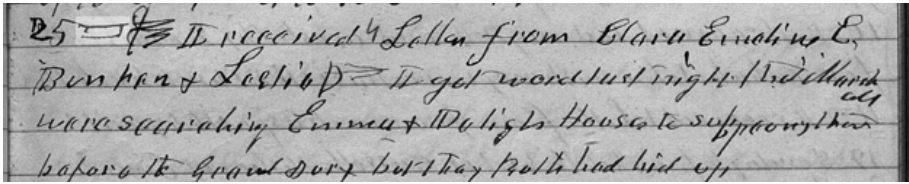 25 I received 4 Letters from Clara Emeline E.
Bunker & Leslie D I got word last night that Marshals
ware searching Emma & Delight Houses to suppoeny them
before the Grand Jury but thay Both had hid up